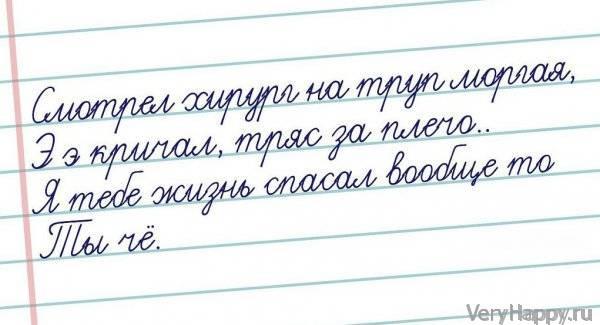 Смотрел хирург на труп моргая,
Э э кричал, тряс за плечо..
Я тебе жизнь спасал вообще то
Ты чё.
VeryHappy.ru